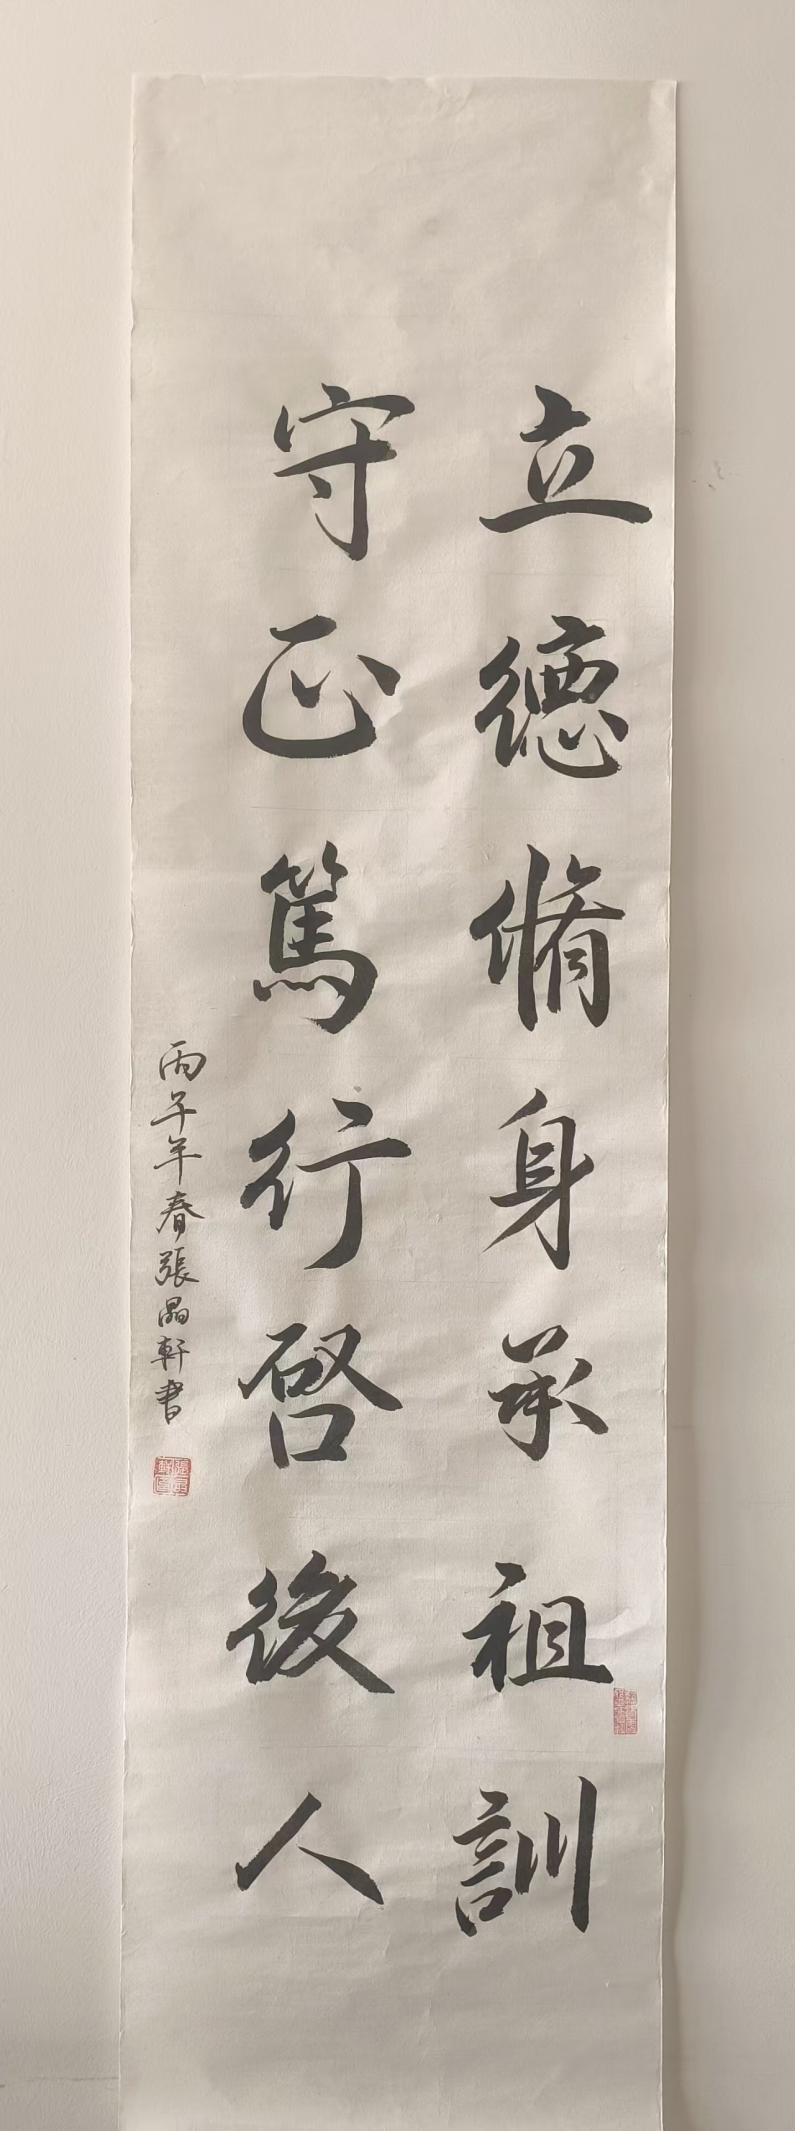 立德脩身承祖訓
守正篤行啓後人
丙子年春張晶軒書